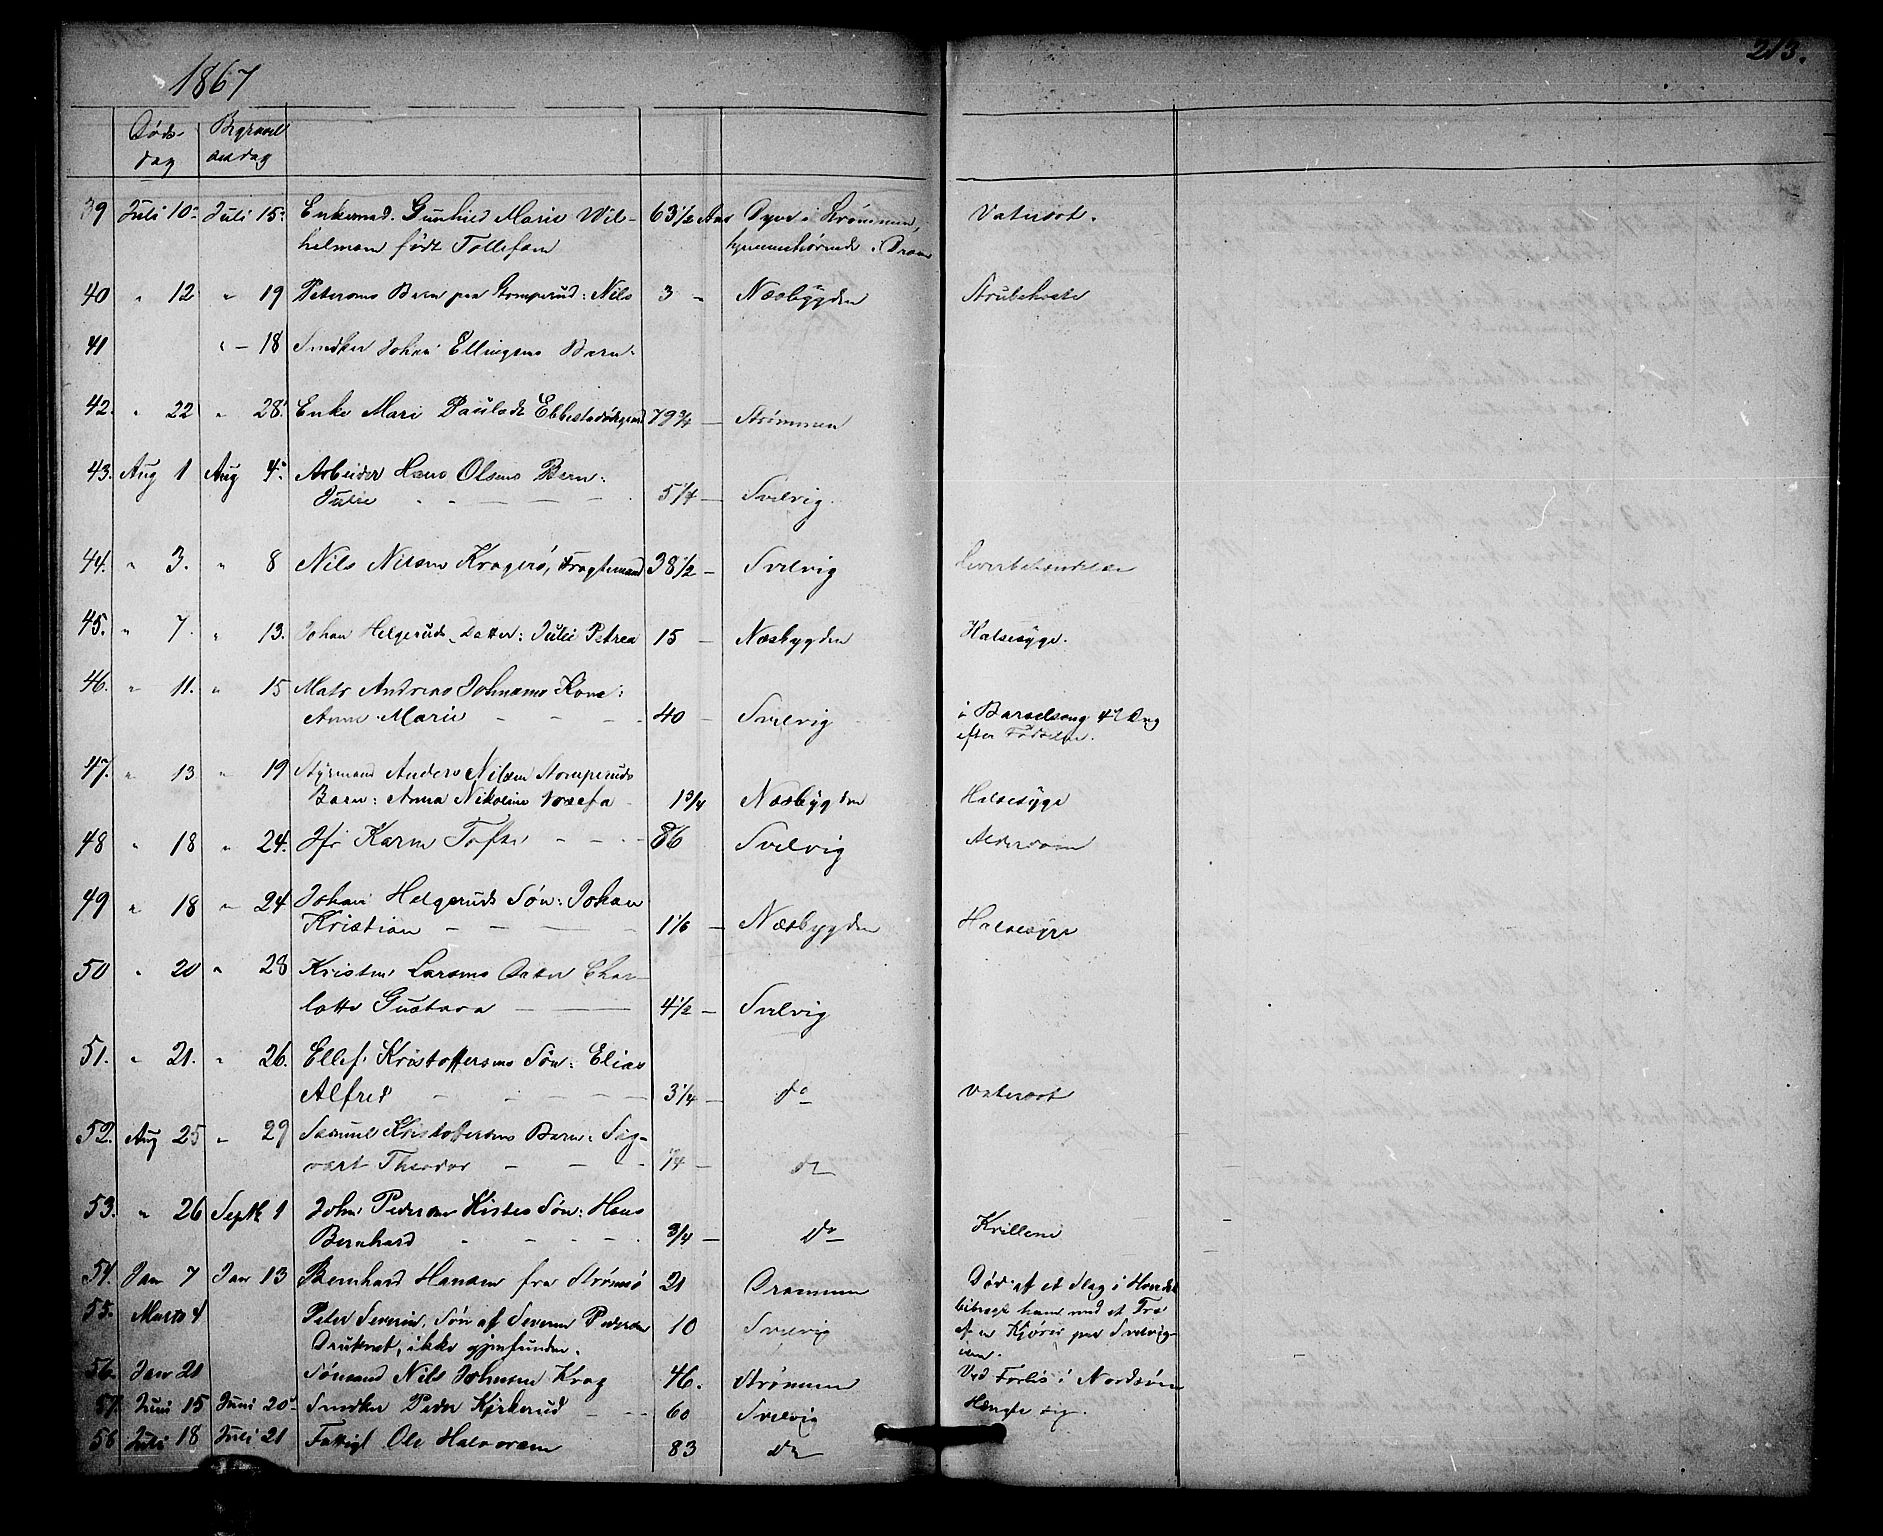 213.
1867
Døds- Begravel
dag sesdag
39 Juli 10. Juli 15. Enkemad. Gunhild Marie Wil- 63 1/2 Aar Dyve i Strømmen, Vatersot.
helmsen født Tollefsen hjemmehørende i Dram
40 " 12 " 19 Petersens Barn paa Stomperud: Nils 3 - Næsbygden Strubehoste
41 " - 18 Snedker Johan Ellingsens Barn.
42. " 22 " 28. Enke Mari Paulsdr 79 3/4 - Strømmen
43. Aug 1 Aug 4. Arbeider Hans Olsens Barn:
Julie - - - - 5 1/4 - Svelvig.
44. " 3. " 8 Nils Nilsen Kragerø, Fragtemand 38 1/2 - Svelvig
45. " 7. " 13. Johan Helgeruds Datter: Julie Petrea 15 - Næsbygden Halsesyge.
46. " 11. " 15 Matr Andreas Johnsens Kone:
Anne Marie - - - - 40 - Svelvig i Barselseng
efter Fødselen.
47. " 13 " 19 Styrmand Anders Nilsen Stomperuds
Barn: Anna Nikoline Josefa - 1 3/4 Næsbygden Halsesyge
48 " 18 " 24. Karen Tofte - - - 86 Svelvig Alderdom
49 " 18 " 24 Johan Helgeruds Søn: Johan
Kristian - - - 1 1/6 - Næsbygden Halsesyge
50 " 20 " 28 Kristen Larsens Datter Char-
lotte Gustava - - 4 1/2 - Svelvig
51. " 21. " 26. Ellef Kristoffersens Søn: Elias
Alfred - - - - - 3 1/4 - do Vatersot
52. Aug 25 " 29 Samuel Kristoffersens Barn: Sig-
vart Theodor - - - 1/4 - do
53. " 26 Septb 1 John Pedersen Kistes Søn: Hans
Bernhard - - - - 3/4 - do Krillerne
54. Jan 7 Jan 13 Bernhard Hansen fra Strømsø 21 Drammen Død af et Slag i Hovedet
bibragt ham med et Træ
55. Marts 4 Peter Severin, Søn af Severin Pedersen 10 Svelvig af en Kjører paa Svelvig-
Druknet, ikke gjenfunden. isen.
56. Jan 21 Sømand Nils Johnsen Krog 46. Strømmen Ved Forlis i Nordsøen
57. Juni 15 Juni 20 Snedker Peder Kjekerud - - 60 Svelvig Hængte sig.
58 Juli 18 Juli 21 Fattigl Ole Halvorsen 83 do